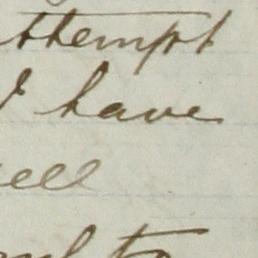 attempt
I have
ell
to